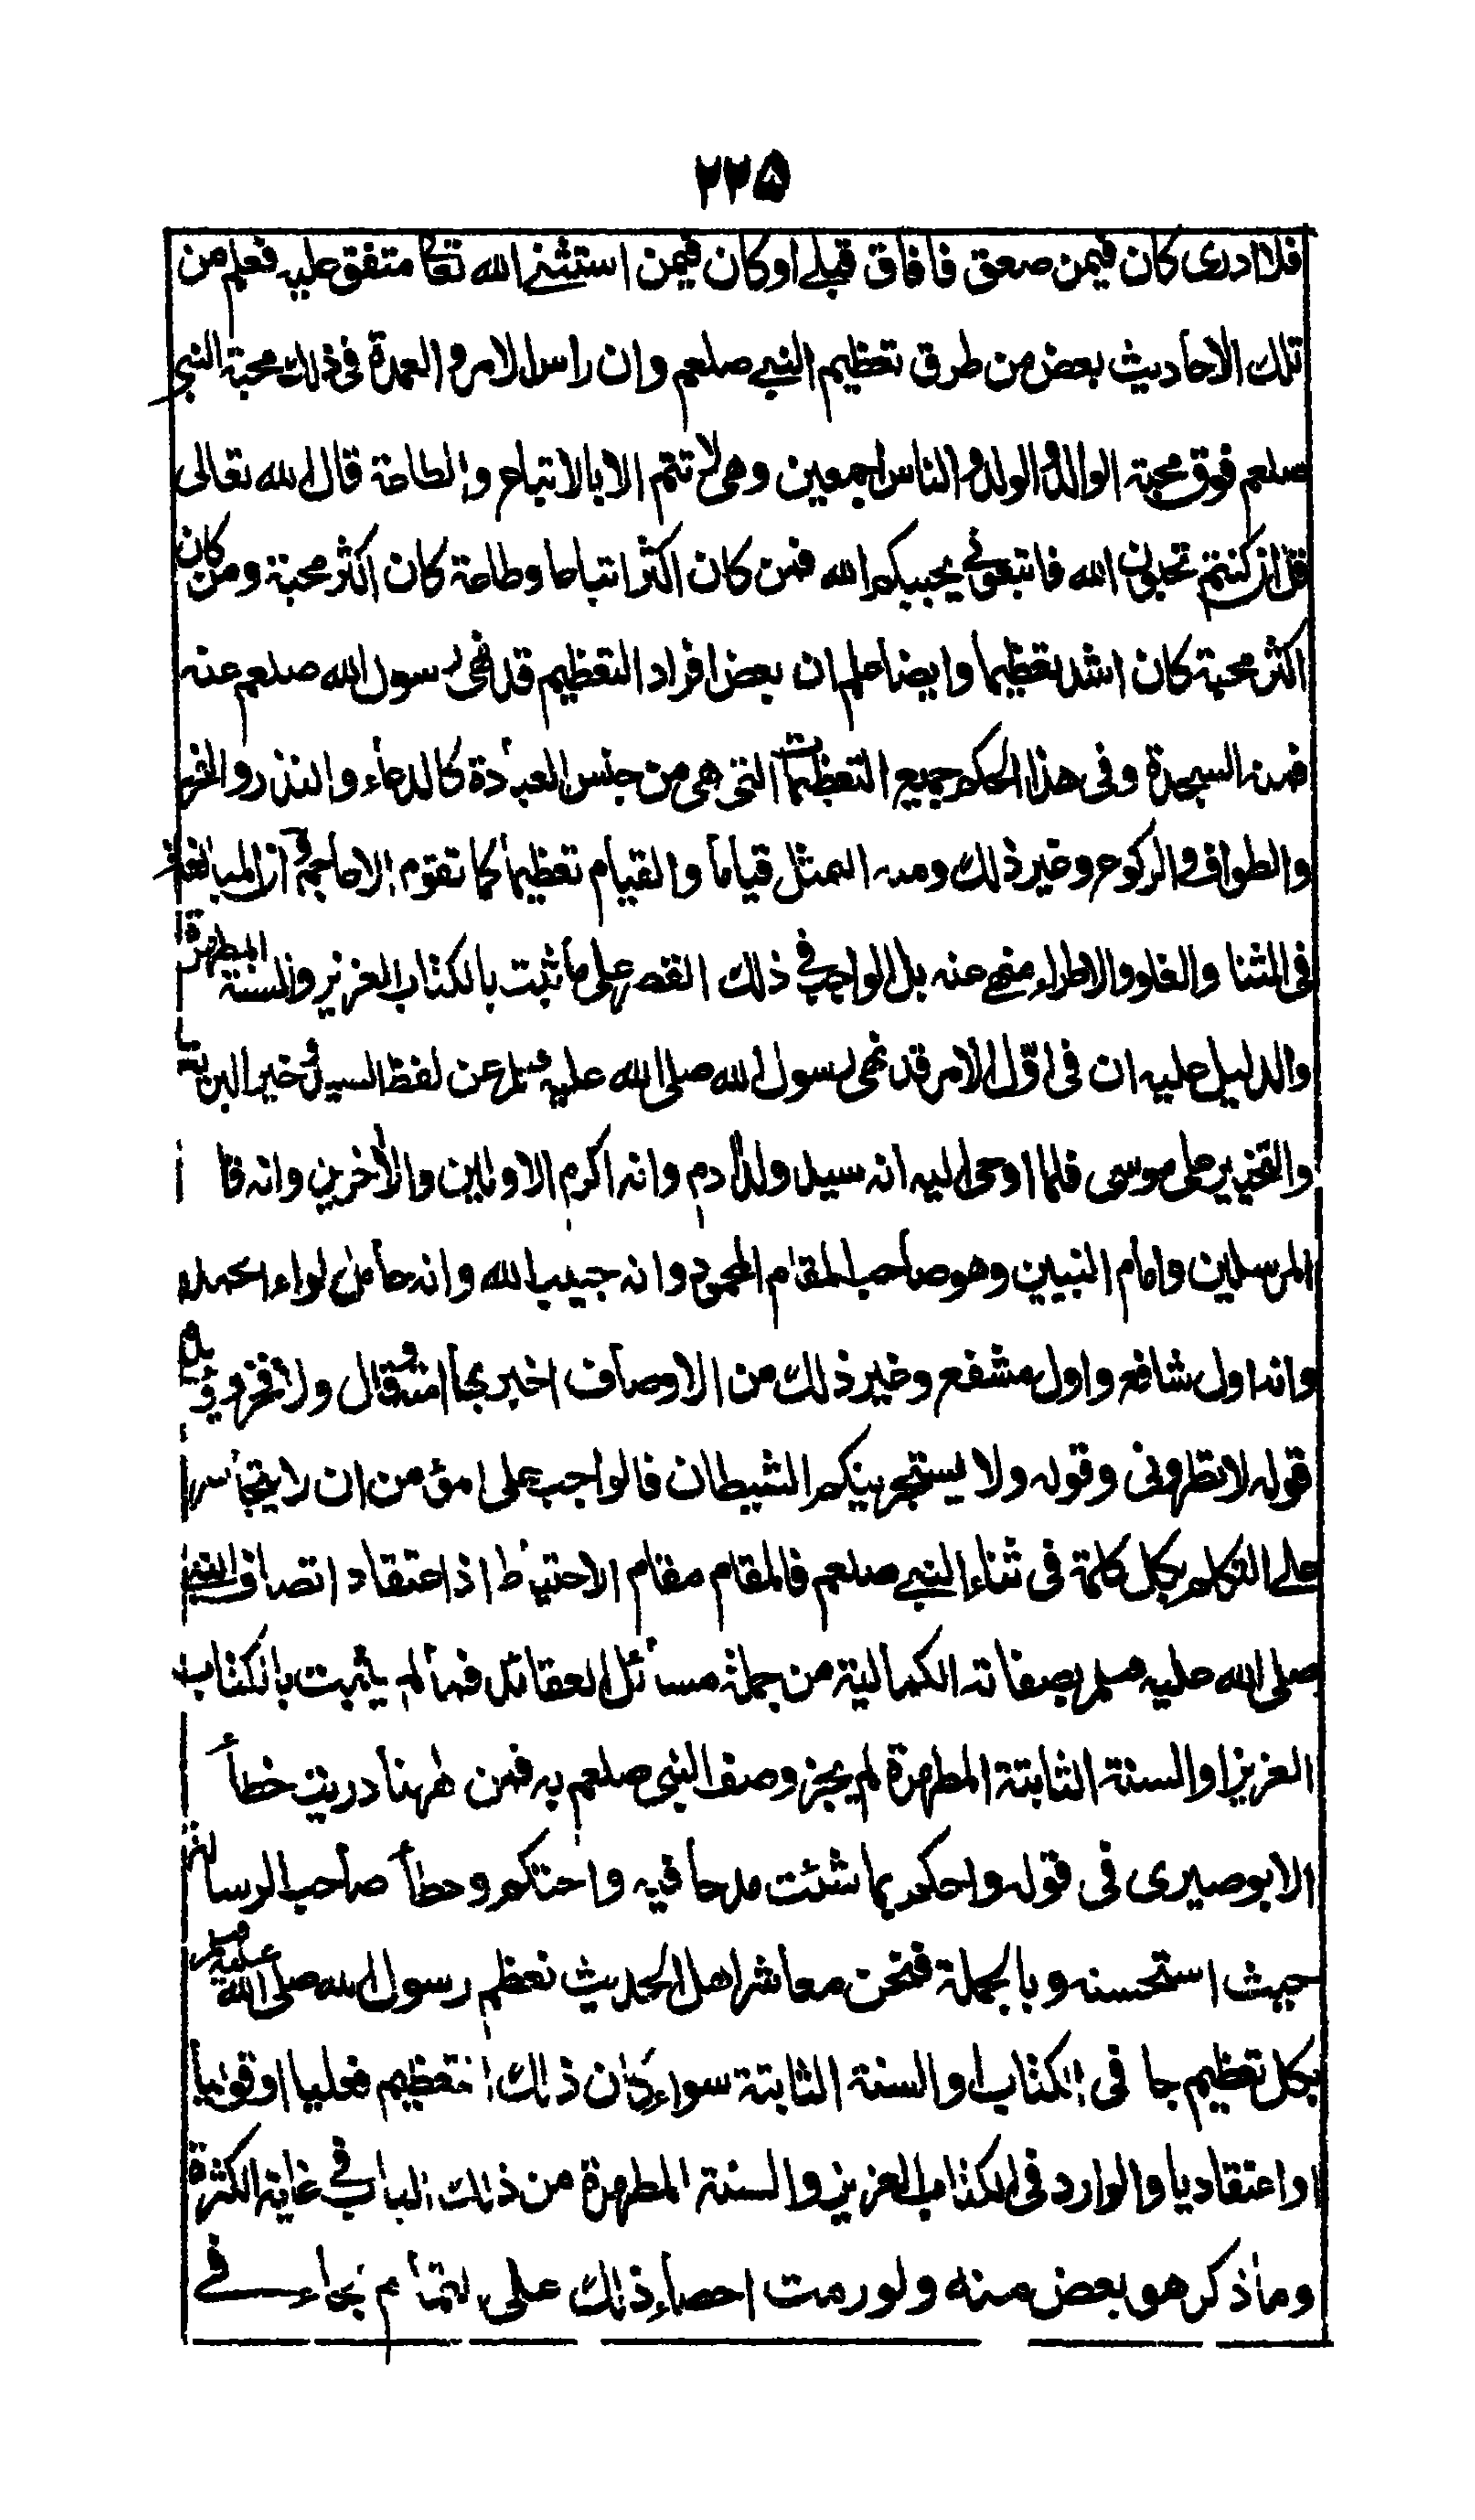 ٢٢٥
فلا ادرى كان فيمن صعق فافاق قبلى او كان فيمن استثنى الله تعا متفق عليه فعلم من
تلك الاحاديث بعض من طرق تعظيم النبي صلعم وان راس الامر والعمدة فى ذلك محبة النبي
صلعم فوق محبة الوالد والولد والناس اجمعين وهى لا تتم الا بالاتباع والطاعة قال الله تعالى
قل ان كنتم تحبون الله فاتبعونى يحببكم الله فمن كان اكثر اتباعا وطاعة كان اكثر محبة ومن كان
اكثر محبة كان اشد تعظيما وايضا علم ان بعض افراد التعظيم قد نهى رسول الله صلعم عنه
فمنه السجدة وفى هذا الحكم جميع التعظيمات التى هى من جنس العبادة كالدعاء والنذر والنحر
والطواف والركوع وغير ذلك ومنه التمثل قياما والقيام تعظيما كما تقوم الاعاجم وان المبالغة
فى الثنا والغلو والاطراء منهى عنه بل الواجب فى ذلك القصر على ما ثبت بالكتاب العزيز والسنة المطهرة
والدليل عليه ان فى اوّل الامر قد نهى رسول الله صلى الله عليه وسلم عن لفظ السيد وخير البرية
والتخيير على موسى فلما اوحى اليه انه سيد ولد ادم وانه اكرم الاولين والأخرين وانه قا
المرسلين وامام النبيين وهو صاحب المقام المحمود وانه حبيب الله وانه حامل لواء الحمد
وانه اول شافع واول مشفع وغير ذلك من الاوصاف اخبر بها امته وقال ولا فخر
قوله لا تطرونى وقوله ولا يستجرينكم الشيطان فالواجب على امؤمن ان لا يتجاسر
على التكلم بكل كلمة فى ثناء النبي صلعم فالمقام مقام الاحتياط اذ اعتقاد اتصاف النبي
صلى الله عليه وسلم بصفاته الكمالية من جملة مسائل العقائد فما لم يثبت بالكتاب
العزيز او السنة الثابتة المطهرة لم يجز وصف النبي صلعم به فمن ههنا دريت خطأ
الابوصيرى فى قوله واحكم بما شئت مدحا فيه واحتكم وخطأ صاحب الرسالة
حيث استحسنه وبالجملة فنحن معاشر اهل الحديث نعظم رسول الله صلى الله عليه وسلم
بكل تعظيم جا فى الكتاب او السنة الثابتة سواء كان ذلك التعظيم فعليا او قوليا
او اعتقاديا والوارد فى الكتاب العزيز والسنة المطهرة من ذلك الباب فى غاية الكثرة
وما ذكر هو بعض منه ولو رمت احصاء ذلك على التمام لجاء فى